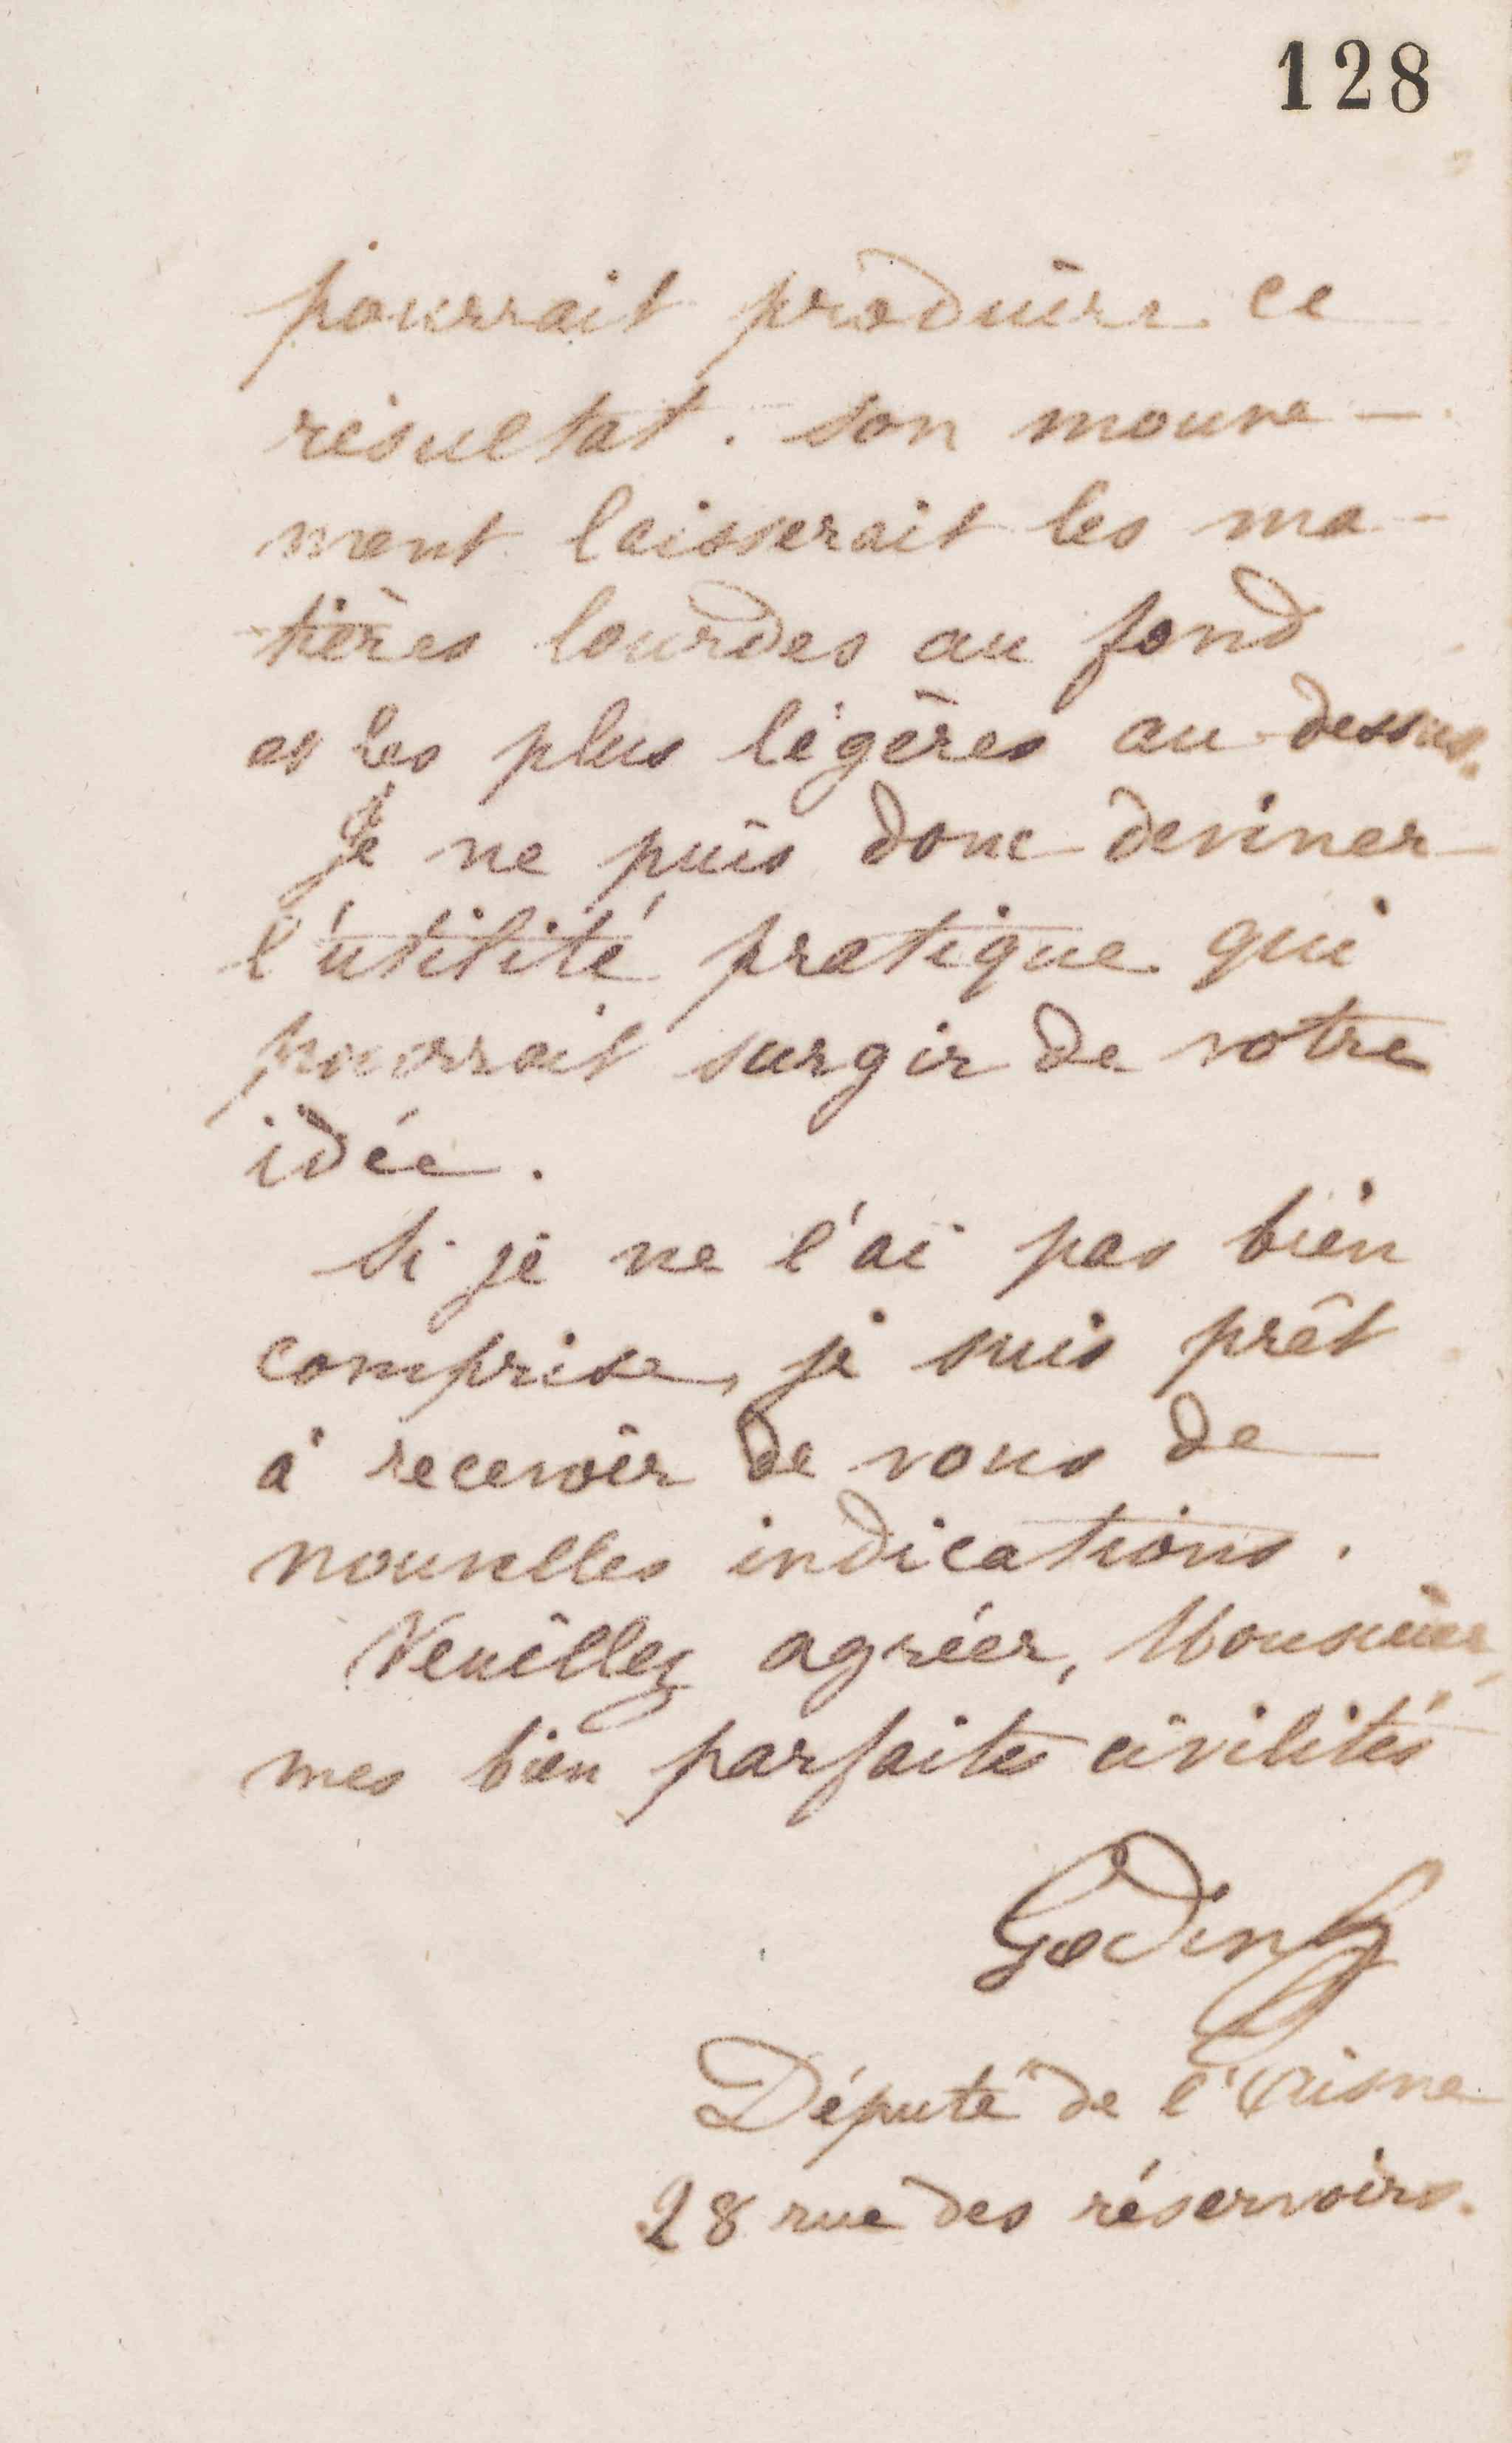 128
pourrait produire ce
résultat. Son mouve-
ment laisserait les ma-
tières lourdes au fond
et les plus légères au dessus.
Je ne puis donc deviner
l'utilité pratique qui
pourrait surgir de votre
idée.
Si je ne l'ai pas bien
comprise, je suis prêt
à recevoir de vous de
nouvelles indications.
Veuillez agréer, Monsieur,
mes bien parfaites civilités
Godin
Député de l'Aisne
28 rue des réservoirs.